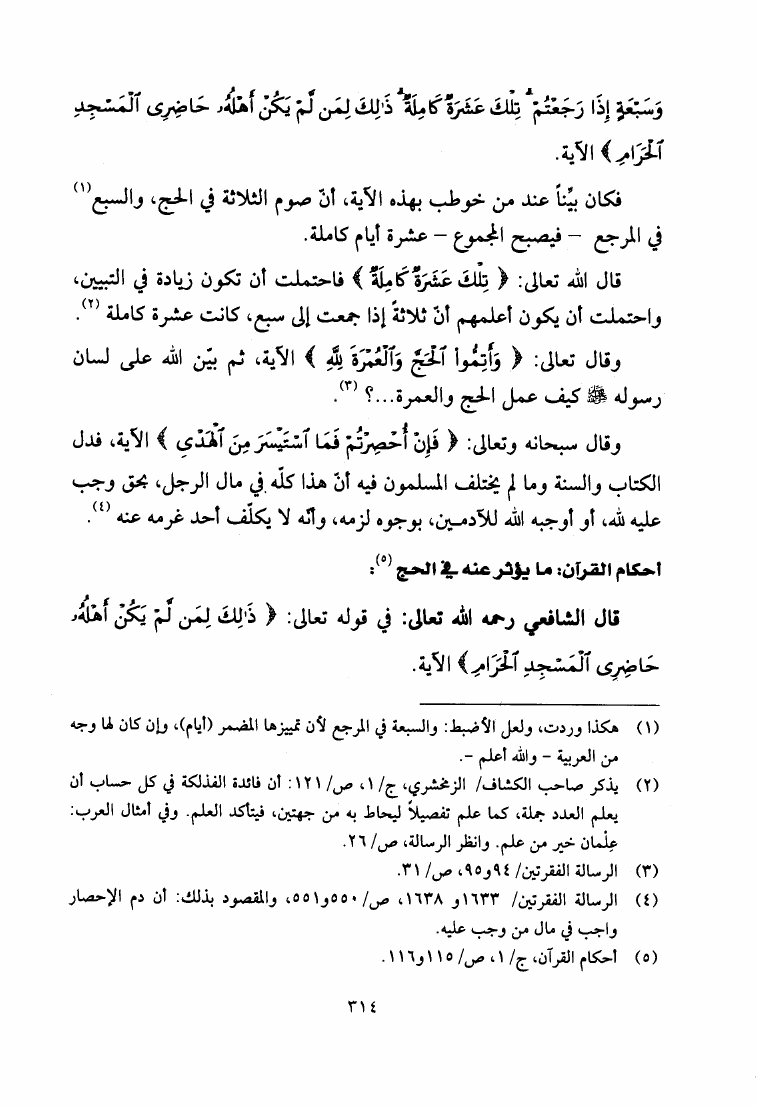 وَسَبْعَةٍ إِذَا رَجَعْتُمْ ۗ تِلْكَ عَشَرَةٌ كَامِلَةٌ ۗ ذَٰلِكَ لِمَن لَّمْ يَكُنْ أَهْلُهُۥ حَاضِرِى ٱلْمَسْجِدِ
ٱلْحَرَامِ ﴾ الآية.
فكان بيِّناً عند من خوطب بهذه الآية، أنّ صوم الثلاثة في الحج، والسبع(١)
في المرجع – فيصبح المجموع – عشرة أيام كاملة.
قال الله تعالى: ﴿ تِلْكَ عَشَرَةٌ كَامِلَةٌ ﴾ فاحتملت أن تكون زيادة في التبيين،
واحتملت أن يكون أعلمهم أنّ ثلاثةً إذا جمعت إلى سبع، كانت عشرة كاملة (٢).
وقال تعالى: ﴿ وَأَتِمُّوا۟ ٱلْحَجَّ وَٱلْعُمْرَةَ لِلَّهِ ﴾ الآية، ثم بيّن الله على لسان
رسوله ﷺ كيف عمل الحج والعمرة...؟ (٣).
وقال سبحانه وتعالى: ﴿ فَإِنْ أُحْصِرْتُمْ فَمَا ٱسْتَيْسَرَ مِنَ ٱلْهَدْىِ ﴾ الآية، فدل
الكتاب والسنة وما لم يختلف المسلمون فيه أنّ هذا كلّه في مال الرجل، بحق وجب
عليه لله، أو أوجبه الله للآدمين، بوجوه لزمه، وأنّه لا يكلّف أحد غرمه عنه (٤).
أحكام القرآن: ما يؤثر عنه في الحج (٥):
قال الشافعي رحمه الله تعالى: في قوله تعالى: ﴿ ذَٰلِكَ لِمَن لَّمْ يَكُنْ أَهْلُهُۥ
حَاضِرِى ٱلْمَسْجِدِ ٱلْحَرَامِ ﴾ الآية.
(١) هكذا وردت، ولعل الأضبط: والسبعة في المرجع لأن تمييزها المضمر (أيام)، وإن كان لها وجه
من العربية – والله أعلم –.
(٢) يذكر صاحب الكشاف/ الزمخشري، ج/١، ص/١٢١: أن فائدة الفذلكة في كل حساب أن
يعلم العدد جملة، كما علم تفصيلاً ليحاط به من جهتين، فيتأكد العلم. وفي أمثال العرب:
عِلْمان خير من علم. وانظر الرسالة، ص/٢٦.
(٣) الرسالة الفقرتين/ ٩٤و٩٥، ص/٣١.
(٤) الرسالة الفقرتين/ ١٦٣٣ و ١٦٣٨، ص/٥٥٠و٥٥١، والمقصود بذلك: أن دم الإحصار
واجب في مال من وجب عليه.
(٥) أحكام القرآن، ج/١، ص/١١٥و١١٦.
٣١٤